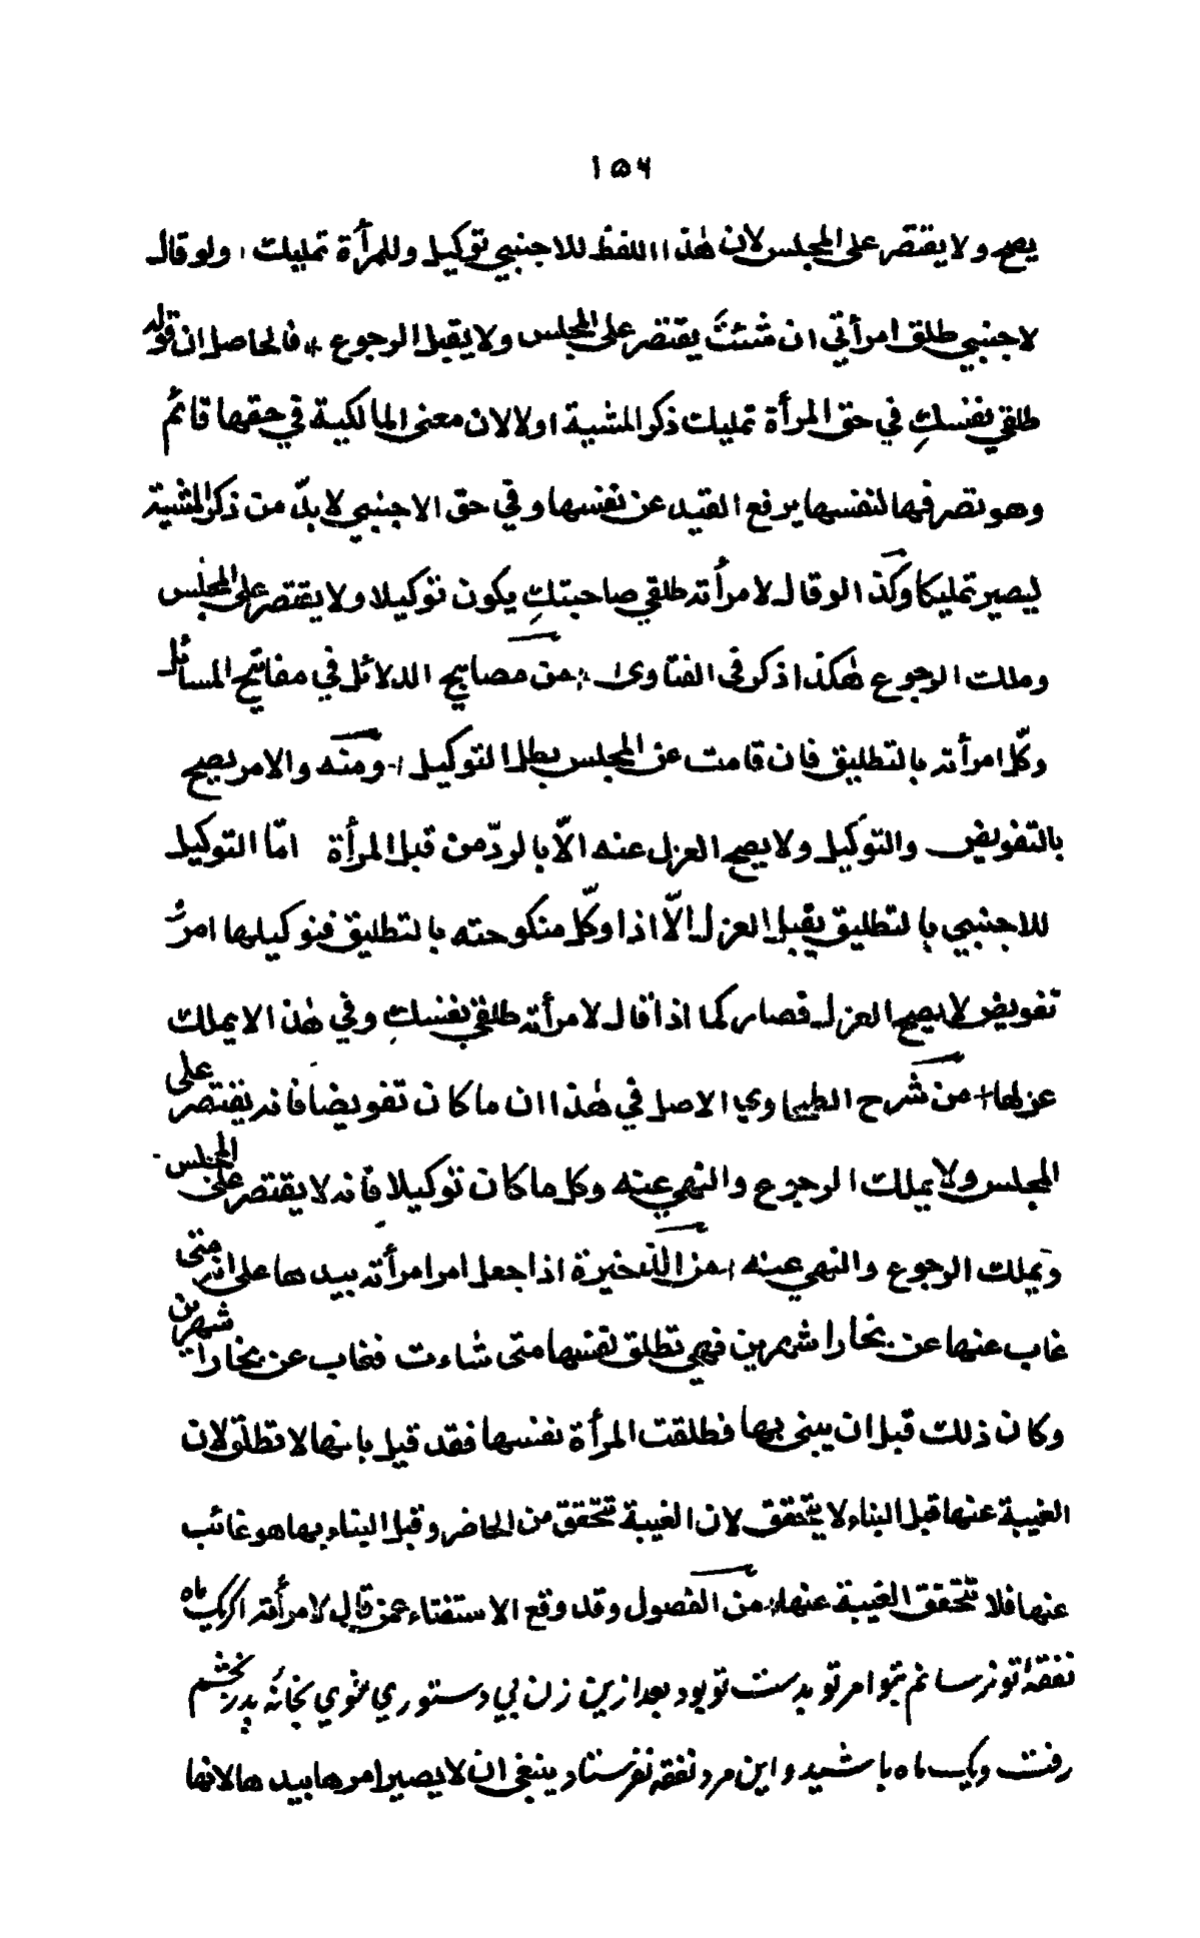 ١٥٦
يصح ولا يقتصر على المجلس لان هٰذا اللفظ للاجنبي توكيل وللمرأة تمليك ، ولو قال
لاجنبي طلق امرأتي ان شئتَ يقتصر على المجلس ولا يقبل الرجوع * فالحاصل ان قوله
طلقي نفسكِ في حق المرأة تمليك ذكر المشية اولا لان معنى المالكية في حقها قائم
وهو تصرفها لنفسها يرفع القيد عن نفسها وفي حق الاجنبي لا بدّ من ذكر المشية
ليصير تمليكا وكذا لو قال لامرأته طلقي صاحبتكِ يكون توكيلا ولا يقتصر على المجلس
وملك الرجوع هٰكذا ذكر فى الفتاوى * من مصابيح الدلائل في مفاتيح المسائل
وكّل امرأته بالتطليق فان قامت عن المجلس بطل التوكيل * ومنه والامر يصح
بالتفويض والتوكيل ولا يصح العزل عنه الّا بالردّ من قبل المرأة امّا التوكيل
للاجنبي بالتطليق يقبل العزل الّا اذا وكّل منكوحته بالتطليق فتوكيلها امرُ
تفويض لا يصح العزل فصار كما اذا قال لامرأته طلقي نفسكِ وفي هٰذا لا يملك
عزلها * من شرح الطحاوي الاصل في هٰذا ان ما كان تفويضا فانه يقتصر على
المجلس ولا يملك الرجوع والنهي عنه وكل ما كان توكيلا فانه لا يقتصر على المجلس
ويملك الرجوع والنهي عنه * من الذخيرة اذا جعل امر امرأته بيدها على انه متى
غاب عنها عن بخارا شهرين فهي تطلق نفسها متى شاءت فغاب عن بخارا شهرين
وكان ذلك قبل ان يبنى بها فطلقت المرأة نفسها فقد قيل بانها لا تطلق لان
الغيبة عنها قبل البناء لا يتحقق لان الغيبة تتحقق من الحاضر وقبل البناء بها هو غائب
عنها فلا تتحقق الغيبة عنها * من الفصول وقد وقع الاستفتاء عمن قال لامرأته اگر یک ماه
نفقهٔ تو نرسانم بتو امر تو بدست تو بود بعد ازین زن بي دستوري شوي بخانهٔ پدر بخشم
رفت ویک ماه باشید و این مرد نفقه نفرستاد ينبغي ان لا يصير امرها بيدها لانها